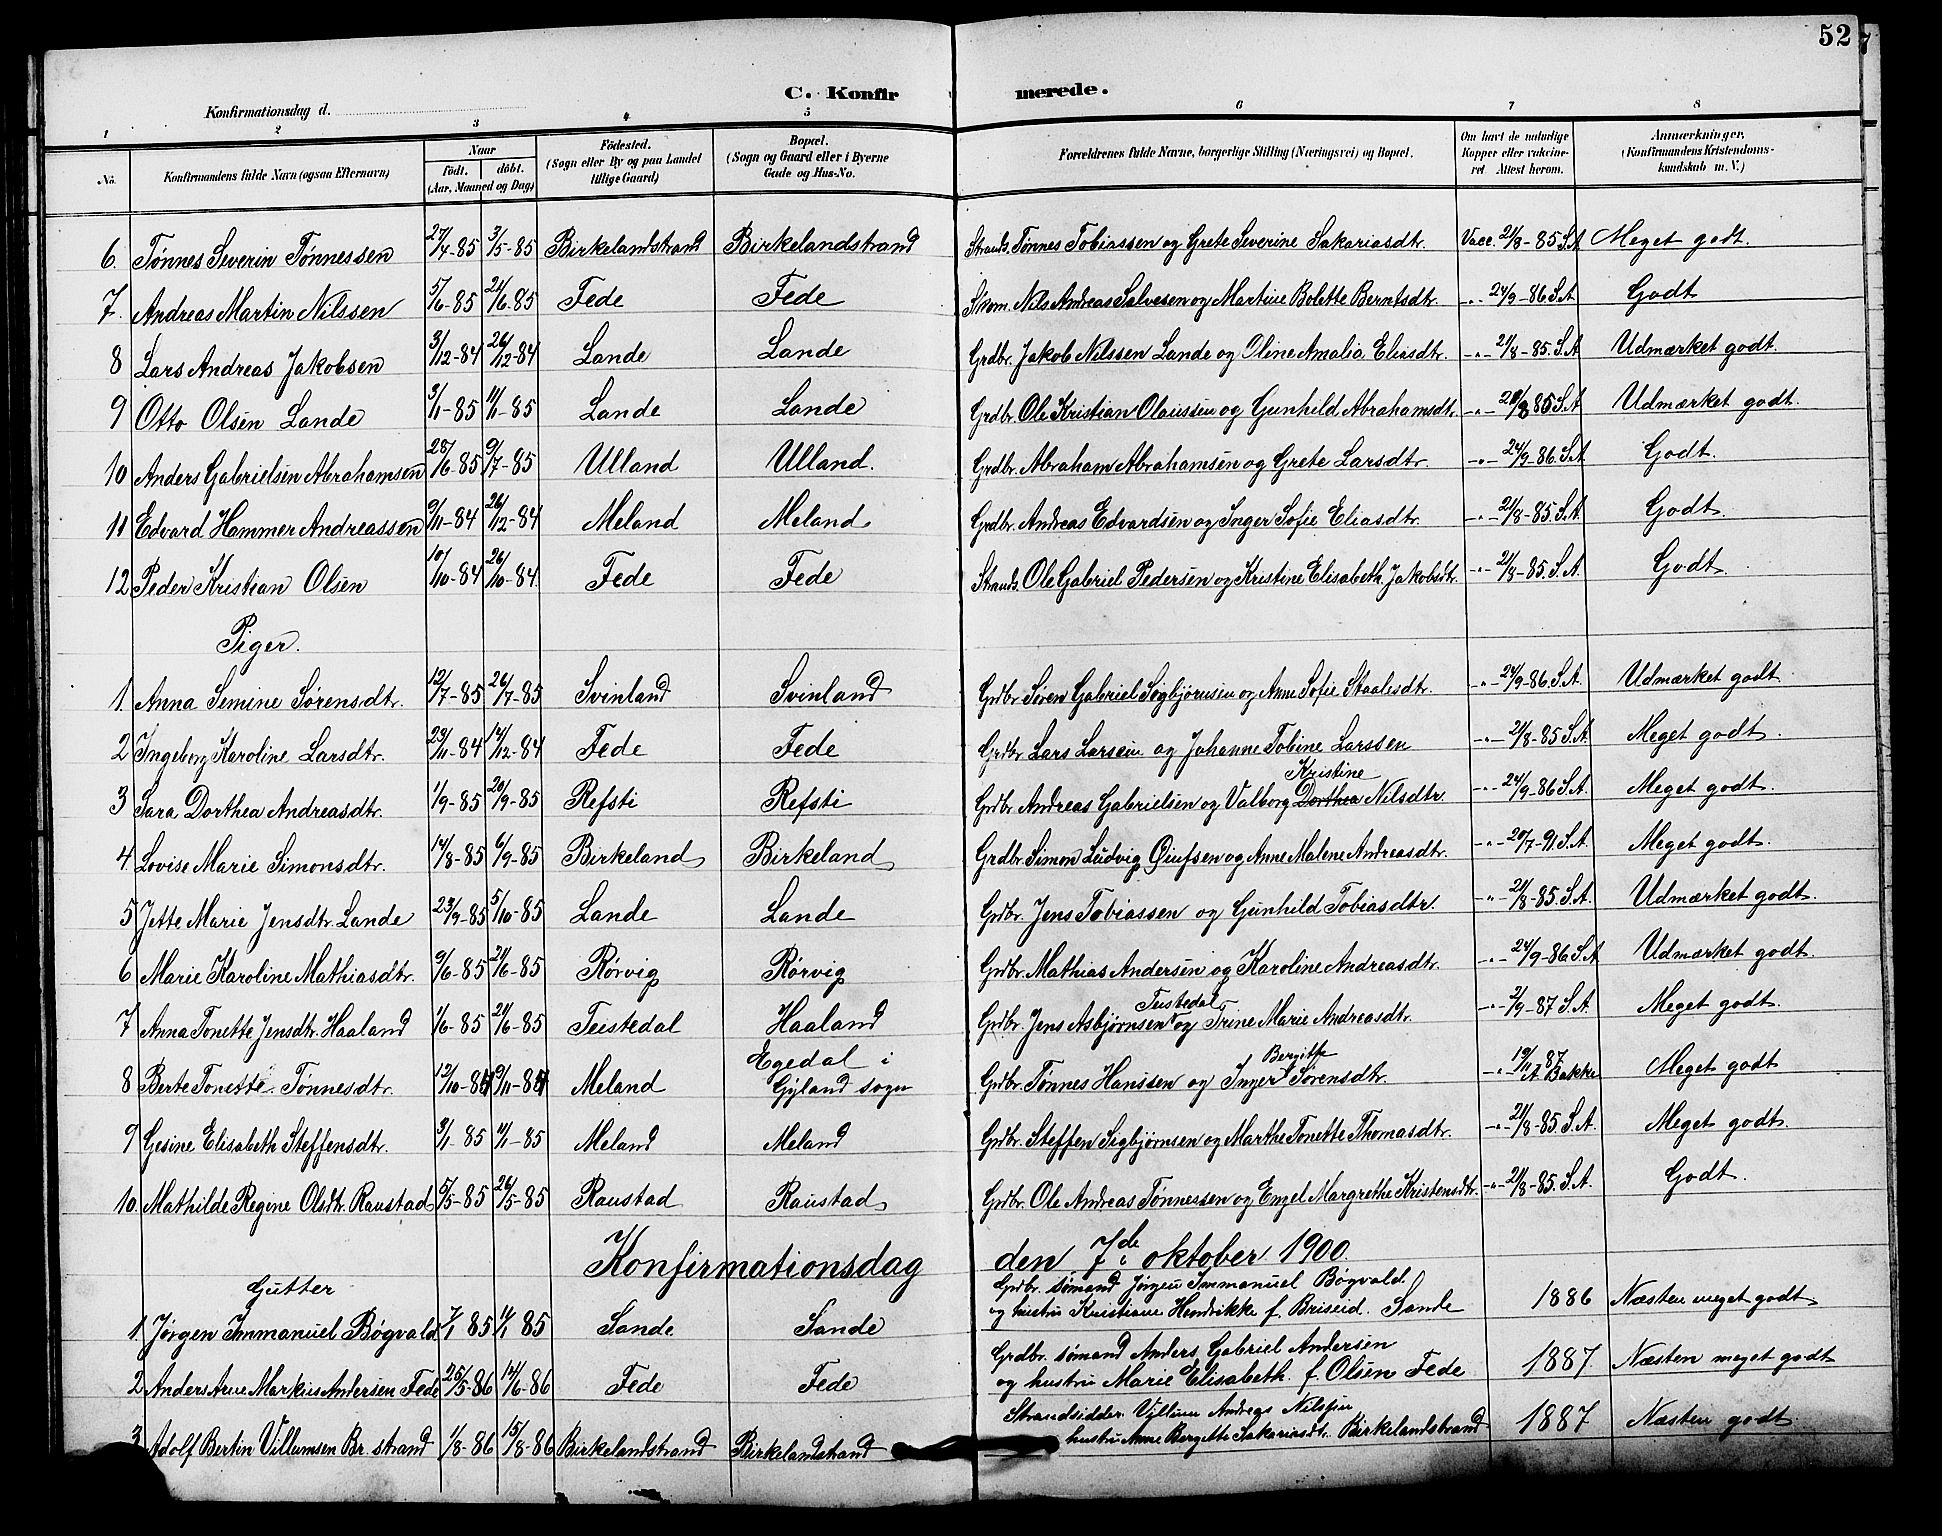 52
C. Konfirmerede.
Konfirmationsdag d.
1 2 3 4 5 6 7 8
No. Konfirmandens fulde Navn (ogsaa Efternavn) Naar Født. døbt. (Aar, Maaned og Dag) Fødested. (Sogn eller By og paa Landet tillige Gaard) Bopæl. (Sogn og Gaard eller i Byerne Gade og Hus-No. Forældrenes fulde Navne, borgerlige Stilling (Næringsvei) og Bopæl. Om havt de naturlige Kopper eller vaccineret Attest herom. Anmærkninger. (Konfirmandens Kristendomskundskab m. V.)
6. Tønnes Severin Tønnessen 27/4-85 3/5-85 Birkelandstrand Birkelandstrand Strands. Tønnes Tobiassen og Grete Severine Sakariasdtr. Vacc. 21/8-85 S.A. Meget godt.
7. Andreas Martin Nilssen 5/6-85 21/6-85 Fede Fede Skom. Nils Andreas Salvesen og Martine Bolette Berntsdtr. -"- 24/9-86 S.A. Godt
8 Lars Andreas Jakobsen 3/12-84 26/12-84 Lande Lande Grdbr. Jakob Nilssen Lande og Oline Amalia Eliasdtr. -"- 21/8-85. S.A. Udmærket godt.
9 Otto Olsen Lande 3/1-85 11/1-85 Lande Lande Grdbr. Ole Kristian Olaussen og Gunhild Abrahamsdtr. -"- 20/8 85 S.A. Udmærket godt.
10 Anders Gabrielsen Abrahamsen 28/6-85 9/7-85 Ulland Ulland. Grdbr. Abraham Abrahamsen og Grete Larsdtr. -"- 24/9-86. S.A. Godt.
11 Edvard Hammer Andreassen 9/11-84 26/12-84 Meland Meland Grdbr. Andreas Edvardsen og Inger Sofie Eliasdtr. -"- 21/8-85. S.A. Godt.
12 Peder Kristian Olsen 10/10-84 26/10-84. Fede Fede Strands. Ole Gabriel Pedersen og Kristine Elisabeth Jakobsdtr. -"- 21/8-85. S.A. Godt.
Piger.
1. Anna Semine Sørensdtr. 12/7-85 26/7-85 Svinland Svinland Grdbr. Søren Gabriel Sigbjørnsen og Anne Sofie Staalesdtr. -"- 24/9-86. S.A. Udmærket godt
2 Ingeborg Karoline Larsdtr. 23/11-84 14/12-84 Fede Fede Grdbr. Lars Larsen og Johanne Tobine Larssen -"- 21/8-85 S.A. Meget godt.
Kristine
3 Sara Dorthea Andreasdtr. 1/9-85 20/9-85 Refsti Refsti Grdbr. Andreas Gabrielsen og Valborg Dorthea Nilsdtr. -"- 24/9-86 S.A. Meget godt.
4. Lovise Marie Simonsdtr. 14/8-85 6/9-85 Birkeland Birkeland Grdbr. Simon Ludvig Øiufsen og Anne Malene Andreasdtr. -"- 20/7-91. S.A. Meget godt.
5 Jette Marie Jensdtr. Lande 23/9-85 5/10-85 Lande Lande Grdbr. Jens Tobiassen og Gunhild Tobiasdtr. -"- 21/8-85. S.A. Udmærket godt.
6 Marie Karoline Mathiasdtr. 9/6-85 21/6-85 Rørvig Rørvig Grdbr. Mathias Andersen og Karoline Andreasdtr. -"- 24/9-86 S.A. Udmærket godt.
Teistedal
7 Anna Tonette Jensdtr. Haaland 1/6-85 21/6-85 Teistedal Haaland Grdbr. Jens Asbjørnsen og Trine Marie Andreasdtr. -"- 2/9-87 S.A. Meget godt.
Bergitte
8 Berte Tonette Tønnesdtr. 12/10-84 9/11-84 Meland Egedal i Gyland sogn Grdbr. Tønnes Hanssen og Inger Sørensdtr. -"- 19/11 87 A Bakke Meget godt
9 Gesine Elisabeth Steffensdtr. 3/1-85 11/1-85 Meland Meland Grdbr. Steffen Sigbjørnsen og Marthe Tonette Thomasdtr. -"- 21/8-85. S.A. Meget godt.
10. Mathilde Regine Olsdtr. Raustad 5/5-85 26/5-85 Raustad Raustad Grdbr. Ole Andreas Tønnessen og Engel Margrethe Kristensdtr. -"- 21/8-85. S.A. Godt.
Konfirmationsdag den 7de oktober 1900.
Gutter
1. Jørgen Immanuel Bøgvald 7/1 85 11/1 85 Sande Sande Grdbr. sømand Jørgen Immanuel Bøgvald og hustru Kristiane Hendrikke f. Briseid. Sande 1886 Næsten meget godt
2 Anders Arne Markus Andersen Fede 25/5-86 14/6-86 Fede Fede Grdbr. sømand Anders Gabriel Andersen og hustru Marie Elisabeth f. Olsen Fede 1887 Næsten meget godt
3 Adolf Bertin Villumsen Br. strand 1/8-86 15/8-86 Birkelandstrand Birkelandstrand Strandsidder Villum Andreas Nilssen hustru Anne Bergitte Sakariasdtr. Birkelandstrand 1887 Næsten godt